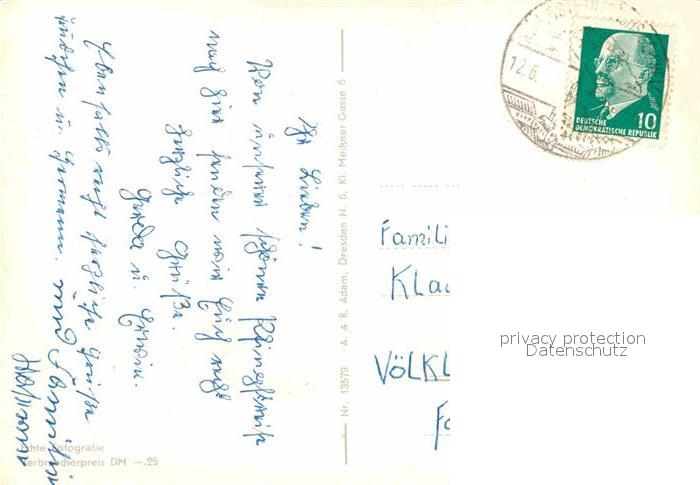 Ihr Lieben!
Von unserer schönen
nach hier senden wir Euch recht
herzliche Grüße.
Gerda u.
Ebenfalls recht herzliche Grüße
u. Hermann. und Familie
Nr. 13579 A. & R. Adam, Dresden N. 6, Kl. Meißner Gasse 6
Echte Fotografie
Verbraucherpreis DM —.25
12.6.
DEUTSCHE
DEMOKRATISCHE REPUBLIK
10
Famili
Kla
VÖLKL
privacy protection
Datenschutz